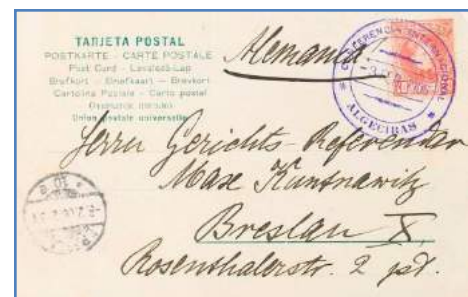 TARJETA POSTAL
POSTKARTE - CARTE POSTALE
Post Card - Levelező-Lap
Brefkort - Briefkaart - Brevkort
Cartolina Postale - Carta postal
Union postale universelle
Alemania
CONFERENCIA INTERNACIONAL
ALGECIRAS
Herrn Gerichts-Referendar
Max
Breslau X.
Rosenthalerstr. 2 pt.